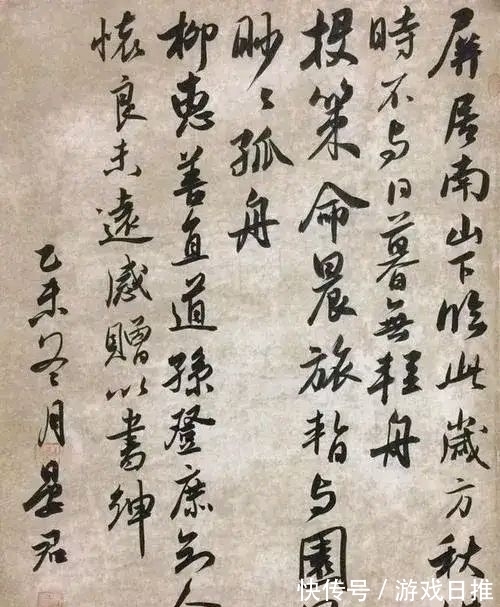 屏居南山下臨此歲方秋
時不与日暮無輕舟
投策命晨旅暫与園
眇〻孤舟
柳惠善直道孫登庶知人
懷良未遠感贈以書紳
乙未冬月君
快传号/游戏日推